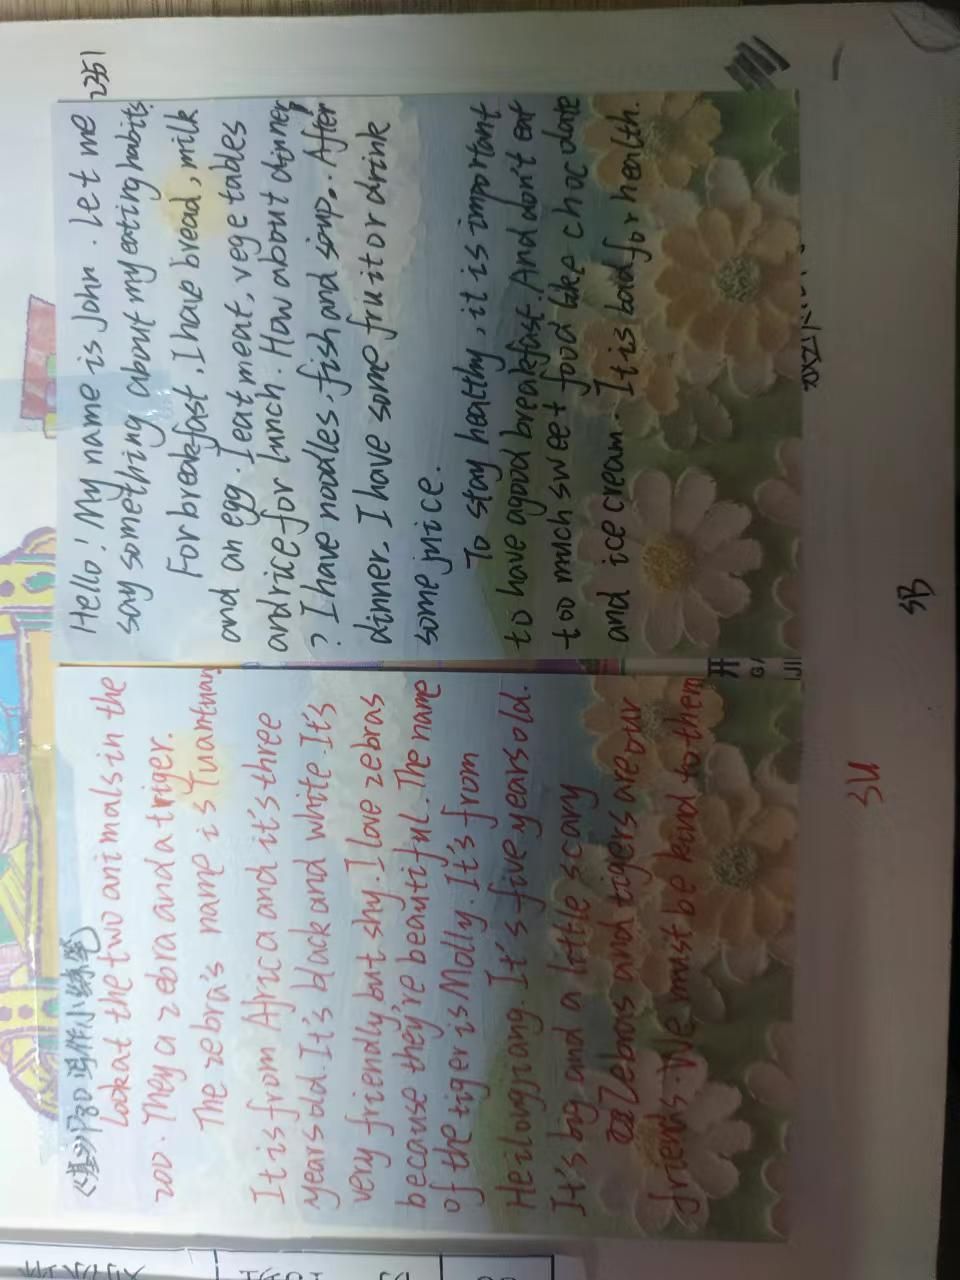 《基分P80写作小练笔》
Look at the two animals in the
zoo. They a zebra and a triger.
The zebra's name is Yuanyuan
It is from Africa and it's three
years old. It's black and white. It's
very friendly, but shy. I love zebras
because they're beautiful. The name
of the tiger is Molly. It's from
Heilongjiang. It's five years old.
It's big and a little scary
Zebras and tigers are our
friends. We must be kind to them
Hello! My name is John. Let me
say something about my eating habits.
For breakfast, I have bread, milk
and an egg. I eat meat, vegetables
and rice for lunch. How about dinner
? I have noodles, fish and soup. After
dinner. I have some fruit or drink
some juice.
To stay healthy, it is important
to have a good breakfast. And don't eat
too much sweet food like chocolate
and ice cream. It is bad for health.
2351
开
SU
SB